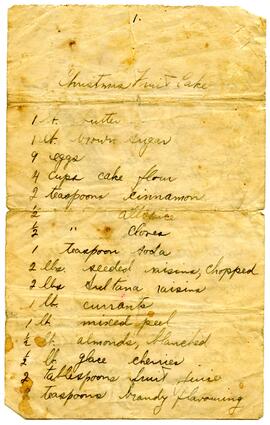 1.
Christmas Fruit Cake
1 lb. butter
1 lb. brown sugar
9 eggs
4 cups cake flour
2 teaspoons cinnamon
½ " allspice
½ " cloves
1 teaspoon soda
2 lbs. seeded raisins, chopped
2 lbs Sultana raisins
1 lb. currants
1 lb. mixed peel
½ lb. almonds, blanched
½ lb. glace cherries
2 tablespoons fruit juice
2 teaspoons brandy flavouring